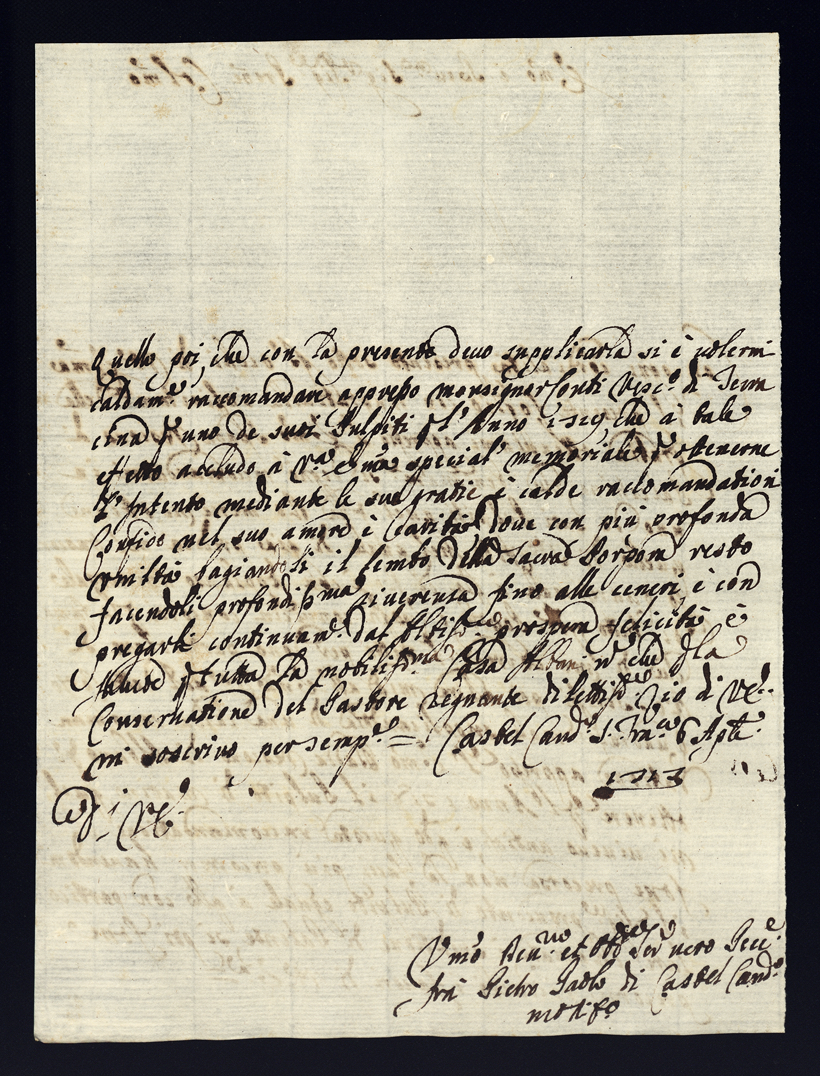 quello poi, che con la presente devo supplicarla si è volermi
caldam.te raccomandare appresso monsignor Conti Vesc.o di Terra
cina p uno de suoi Pulpiti p l'Anno 1719, che à tale
effetto accludo à V.ra Em.za special memoriale p ottenerne
l'intento mediante le sue gratie è calde raccomandationi
Confido nel suo amore è carità dove con più profonda
umiltà bagiandoli il lembo della sacra Porpora resto
facendoli profondissma riverenza fino alle ceneri è con
pregarli continuam.te dal Altis.mo prospera felicità è
salute p tutta la nobilissma Casa Albani che p la
Conservatione del Pastore regnante dilettis.mo Zio di V.E.
mi soscrivo per semp.e = Castel Cand.o S. Fra.co 6 Aple
1713
Di V.E.
Vmo Deu.mo et Obb.mo Ser vero
fra Pietro Paolo di Castel Cand.o